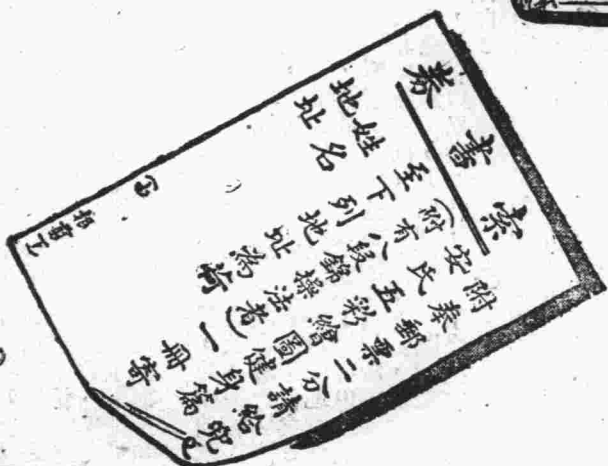 索書券
附奉郵票二分請給兜
安氏五彩繪圖健身篇
(附有八段錦操法者)一冊寄
至下列地址為荷
姓名
地址